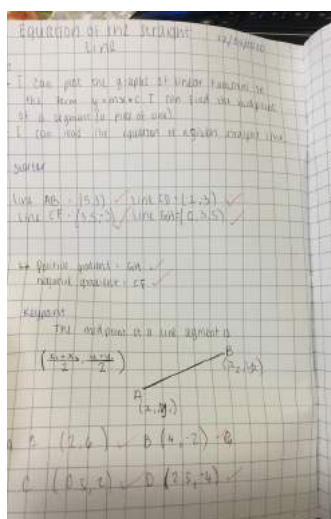 Equation of the straight
line
- I can plot the graphs of linear functions in
the form y=mx+c. I can find the midpoint
of a segment (a piece of line)
I can read the equation of a given straight line.
Starter
Line AB = (5,3) ✓ Line CD = (2,3) ✓
Line EF = ✓ Line GH =
Positive gradient = GH ✓
negative gradient = CF
Keypoint
The midpoint of a line segment is
(x₁+x₂/2, y₁+y₂/2)
B
(x₂, y₂)
A
(x₁, y₁)
(2,6) ✓ B (4,-2)
C ✓ D (2.5,-4) ✓